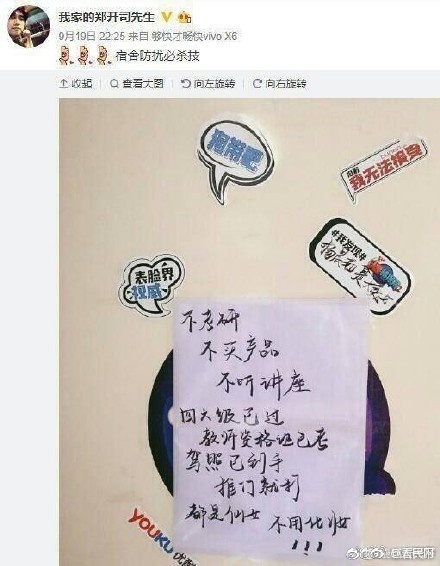 我家的郑开司先生
9月19日 22:25 来自 够快才畅快vivo X6
宿舍防扰必杀技
收起 查看大图 向左旋转 向右旋转
我无法接受
表脸界
权威
不考研
不买产品
不听讲座
四六级已过
教师资格证已考
驾照已到手
推门就打
都是仙女 不用化妆
!!!
YOUKU